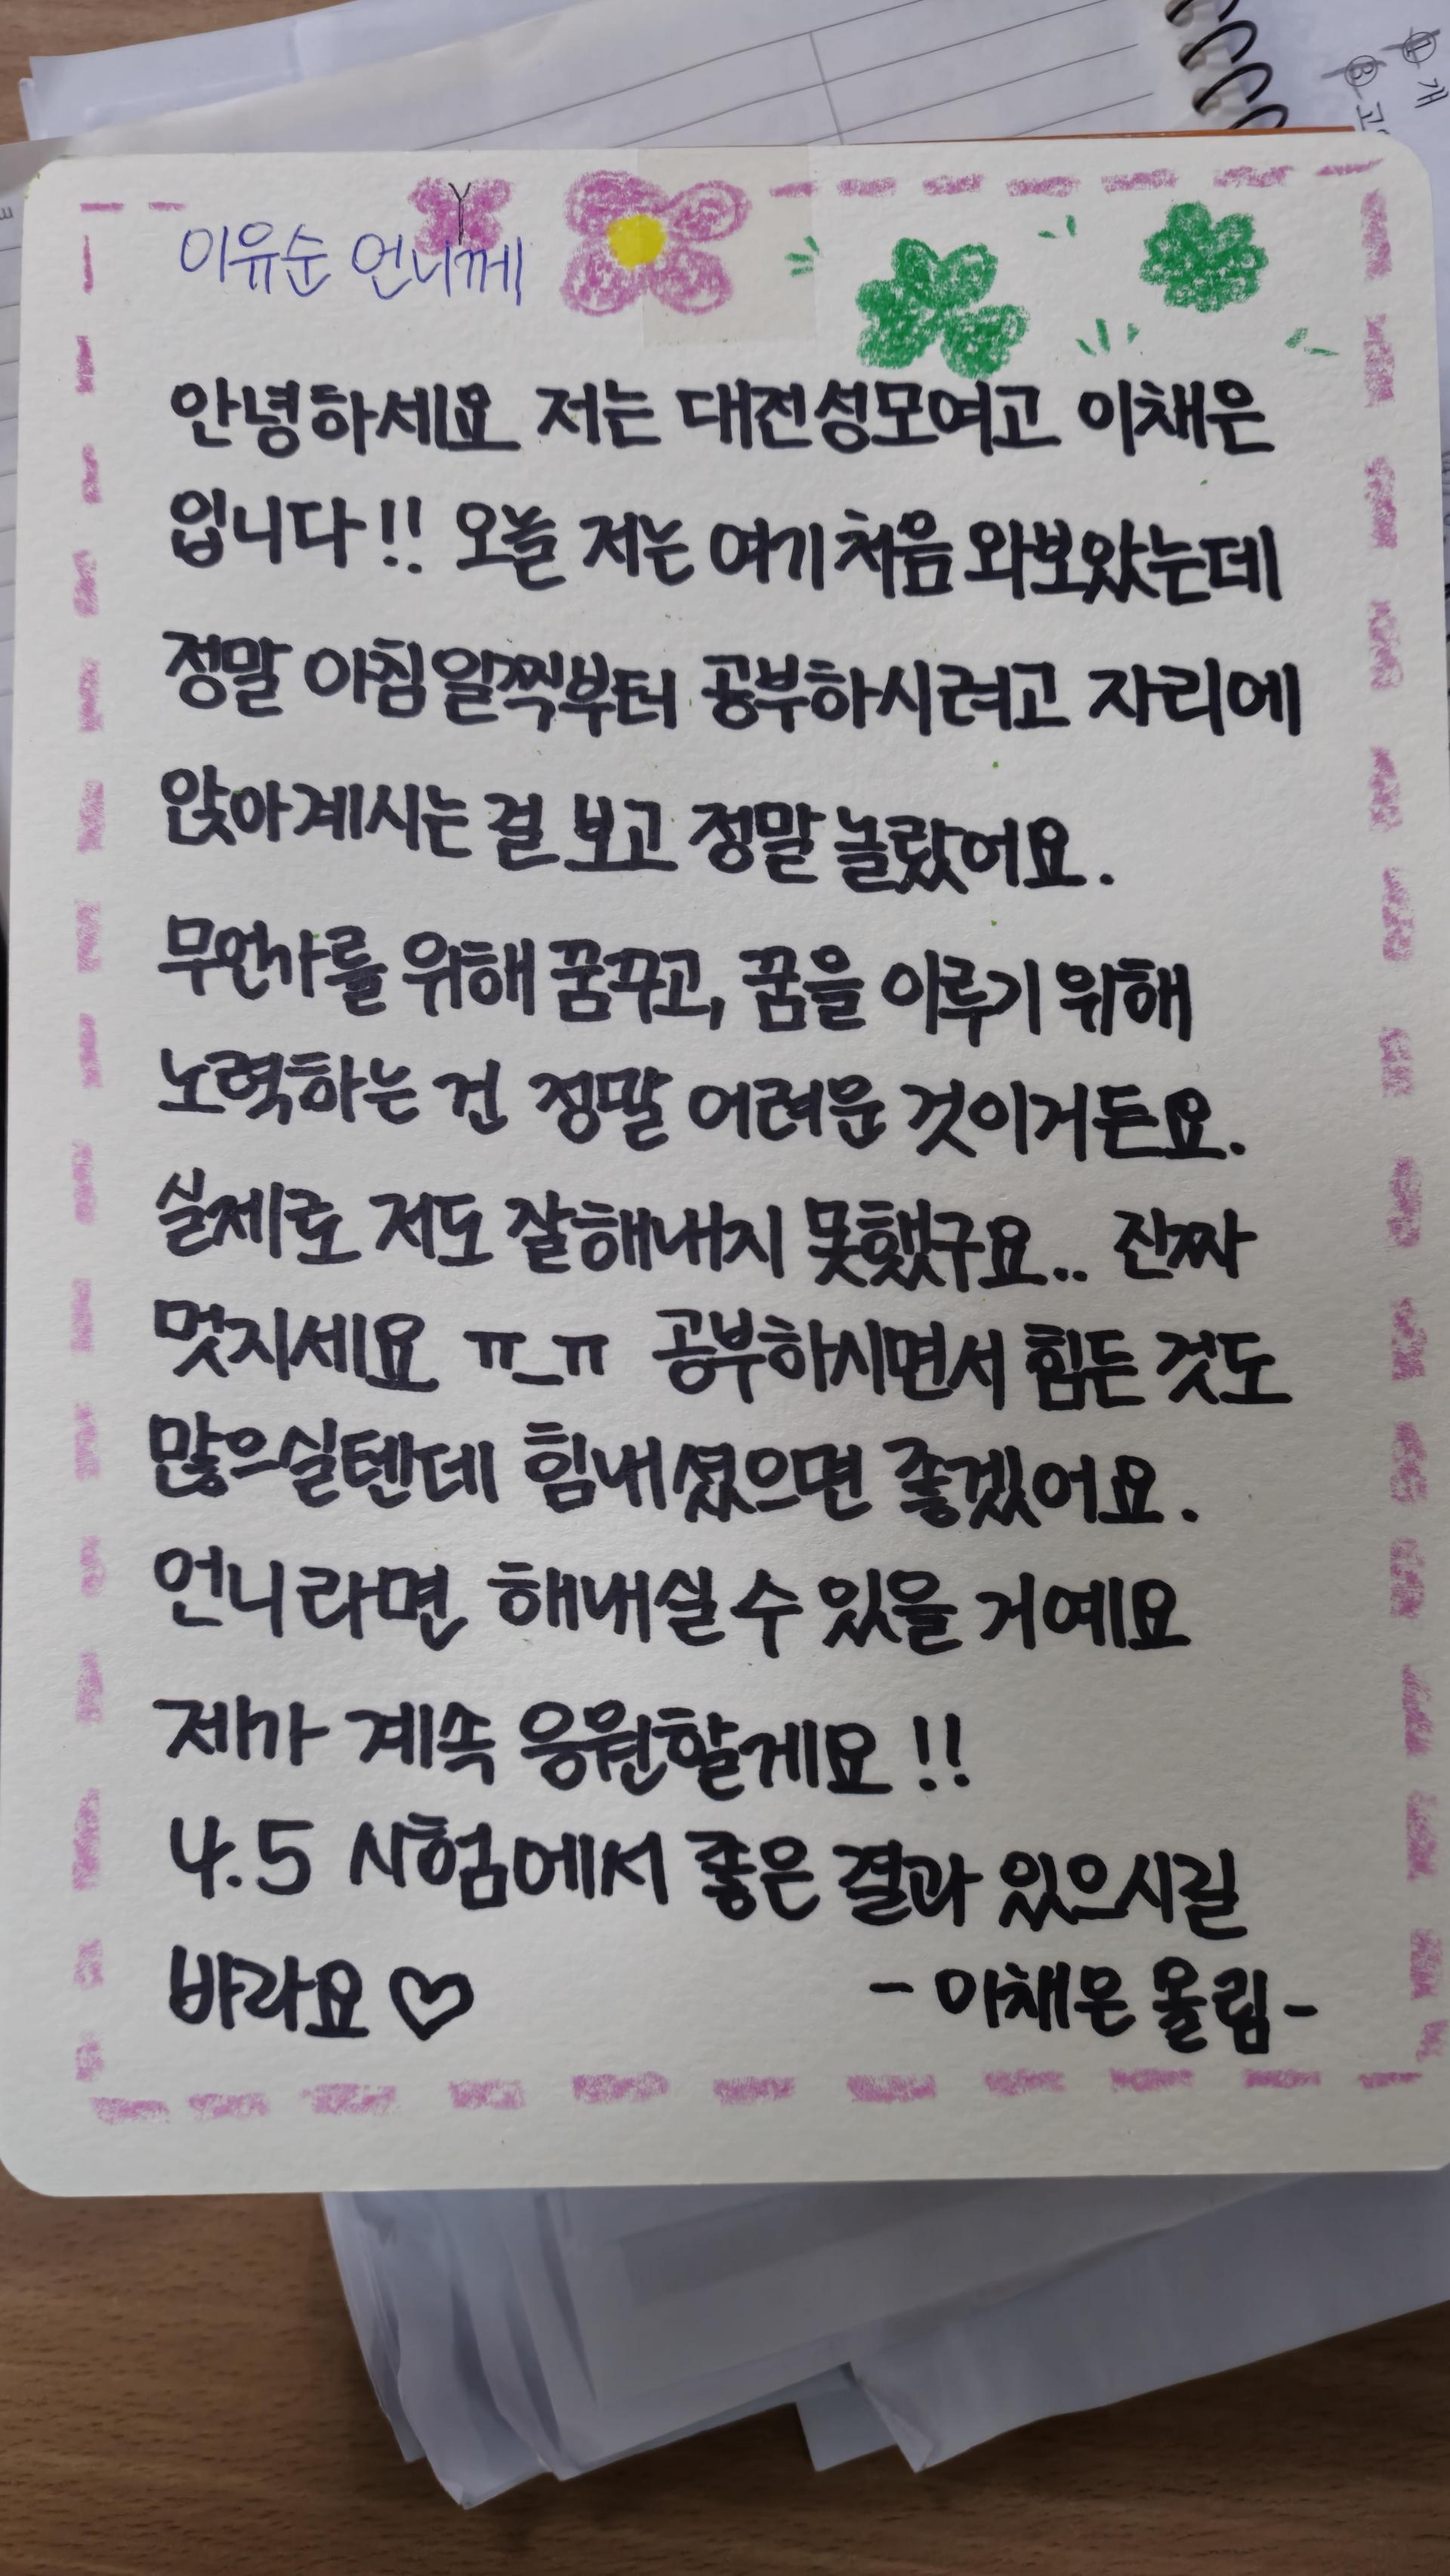 ① 개
③ 고
이유순 언니께
안녕하세요 저는 대전성모여고 이채은
입니다!! 오늘 저는 여기 처음 와보았는데
정말 아침 일찍부터 공부하시려고 자리에
앉아계시는 걸 보고 정말 놀랐어요.
무언가를 위해 꿈꾸고, 꿈을 이루기 위해
노력하는 건 정말 어려운 것이거든요.
실제로 저도 잘해내지 못했구요.. 진짜
멋지세요 ㅠ_ㅠ 공부하시면서 힘든 것도
많으실텐데 힘내셨으면 좋겠어요.
언니라면 해내실 수 있을 거예요
제가 계속 응원할게요!!
4.5 시험에서 좋은 결과 있으시길
바라요♡
- 이채은 올림-